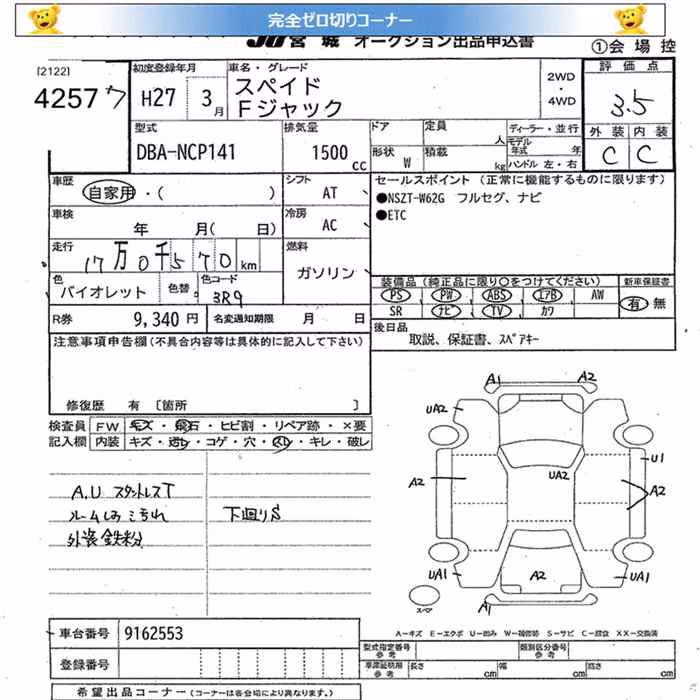 完全ゼロ切りコーナー
JU宮城 オークション出品申込書
①会場控
[2122]
4257 ワ
初度登録年月
H27 3月
車名・グレード
スペイド
Fジャック
2WD
・
4WD
評価点
3.5
外装 内装
C C
型式
DBA-NCP141
排気量
1500 cc
ドア
形状 W
定員 人
積載 kg
ディーラー・並行
モデル年式 年
ハンドル 左・右
車歴
自家用・( )
シフト
AT
車検
年 月( 日)
冷房
AC
走行
17万0千570km
燃料
ガソリン
色
バイオレット
色替
色コード
3R9
R券 9,340円 名変通知期限 月 日
セールスポイント (正常に機能するものに限ります)
●NSZT-W62G フルセグ、ナビ
●ETC
装備品 (純正品に限り○をつけてください)
PS PW ABS エアB AW
SR ナビ TV カワ
新車保証書
有 無
後日品
取説、保証書、スペアキー
注意事項申告欄(不具合内容等は具体的に記入して下さい)
修復歴 有 [箇所 ]
検査員記入欄
FW キズ・飛石・ヒビ割・リペア跡・×要
内装 キズ・汚レ・コゲ・穴・スレ・キレ・破レ
A.U スタットレスT
ルームしみこちれ 下廻りS
外装鉄粉
A1 A2
UA2
U1
A2 UA2 A2
UA1 A2 UA1
スペア
A1
A-キズ E-エクボ U-凹み W-補修跡 S-サビ C-腐食 XX-交換済
車台番号 9162553
登録番号
型式指定番号 参考
類別区分番号 参考
車庫証明用 参考
長さ cm 幅 cm 高さ cm
希望出品コーナー (コーナーは各会場により異なります。)